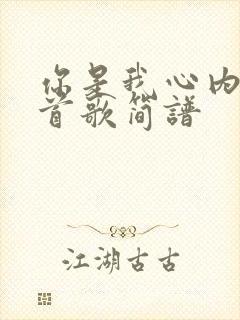 你是我心内
首歌简谱
江湖古古